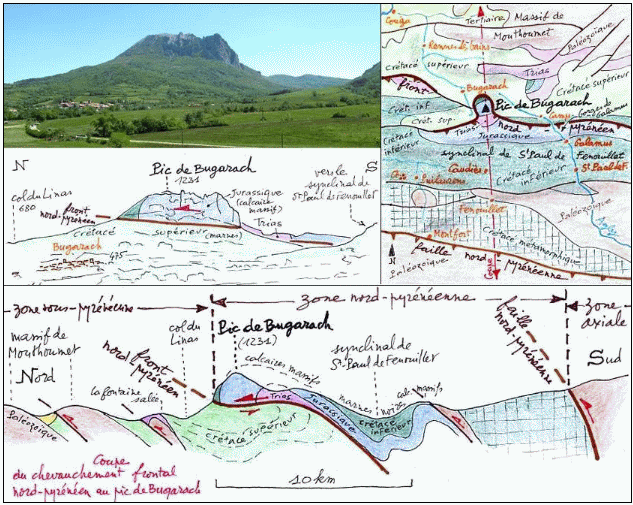 N
S
Pic de Bugarach
1231
vers le
synclinal de
St Paul de Fenouillet
col du Linas
680
Jurassique
(calcaire
massif)
Trias
front
nord-pyrénéen
Crétacé
supérieur
(marnes)
Bugarach
475
Couiza
Tertiaire
Massif de
Mouthoumet
Paléozoïque
Rennes les Bains
Crétacé
supérieur
Trias
Crétacé supérieur
front
Bugarach
Pic de Bugarach
Crét. inf
Crét. sup.
Cubières
Gorges de
Galamus
Trias
nord
pyrénéen
Jurassique
Crétacé
inférieur
Galamus
synclinal de St Paul de
Fenouillet
Caudiès
Crétacé
inférieur
St Paul de F.
Puilaurens
Fenouillet
Paléozoïque
Crétacé métamorphique
Montfort
N
Paléozoïque
faille
nord
pyrénéenne
Coupe
zone sous-pyrénéenne
zone nord-pyrénéenne
zone
axiale
massif de
Mouthoumet
col du
Linas
Pic de Bugarach
(1231)
faille
nord-pyrénéenne
Nord
Sud
front
nord
pyrénéen
calcaires massifs
synclinal de
St Paul de Fenouillet
la fontaine
salée
marnes noires
calc. massifs
Paléozoïque
Trias
Jurassique
Crétacé supérieur
Crétacé
inférieur
Coupe
du chevauchement frontal
nord-pyrénéen au pic de Bugarach
10 km